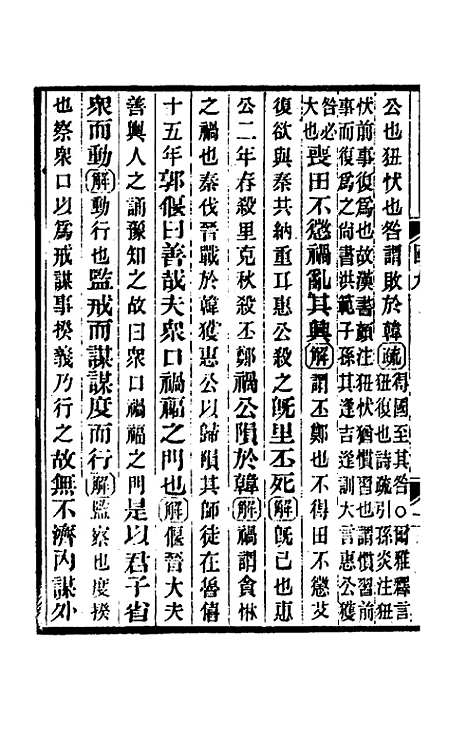 公也狃伏也咎謂敗於韓疏得國至其咎○爾雅釋言狃復也詩疏引孫炎注狃
伏前事復爲也故漢書顏注狃伏猶慣習也謂慣習前
事而復爲之尙書洪範子孫其逢吉逢訓大言惠公獲
咎必大也喪田不懲禍亂其興解謂丕鄭也不得田不懲艾
復欲與秦共納重耳惠公殺之旣里丕死解旣已也惠
公二年春殺里克秋殺丕鄭禍公隕於韓解禍謂貪惏
之禍也秦伐晉戰於韓獲惠公以歸隕其師徒在魯僖
十五年郭偃曰善哉夫衆口禍福之門也解偃晉大夫
善輿人之誦豫知之故曰衆口禍福之門是以君子省
衆而動解動行也監戒而謀謀度而行解監察也度揆
也察衆口以爲戒謀事揆義乃行之故無不濟內謀外